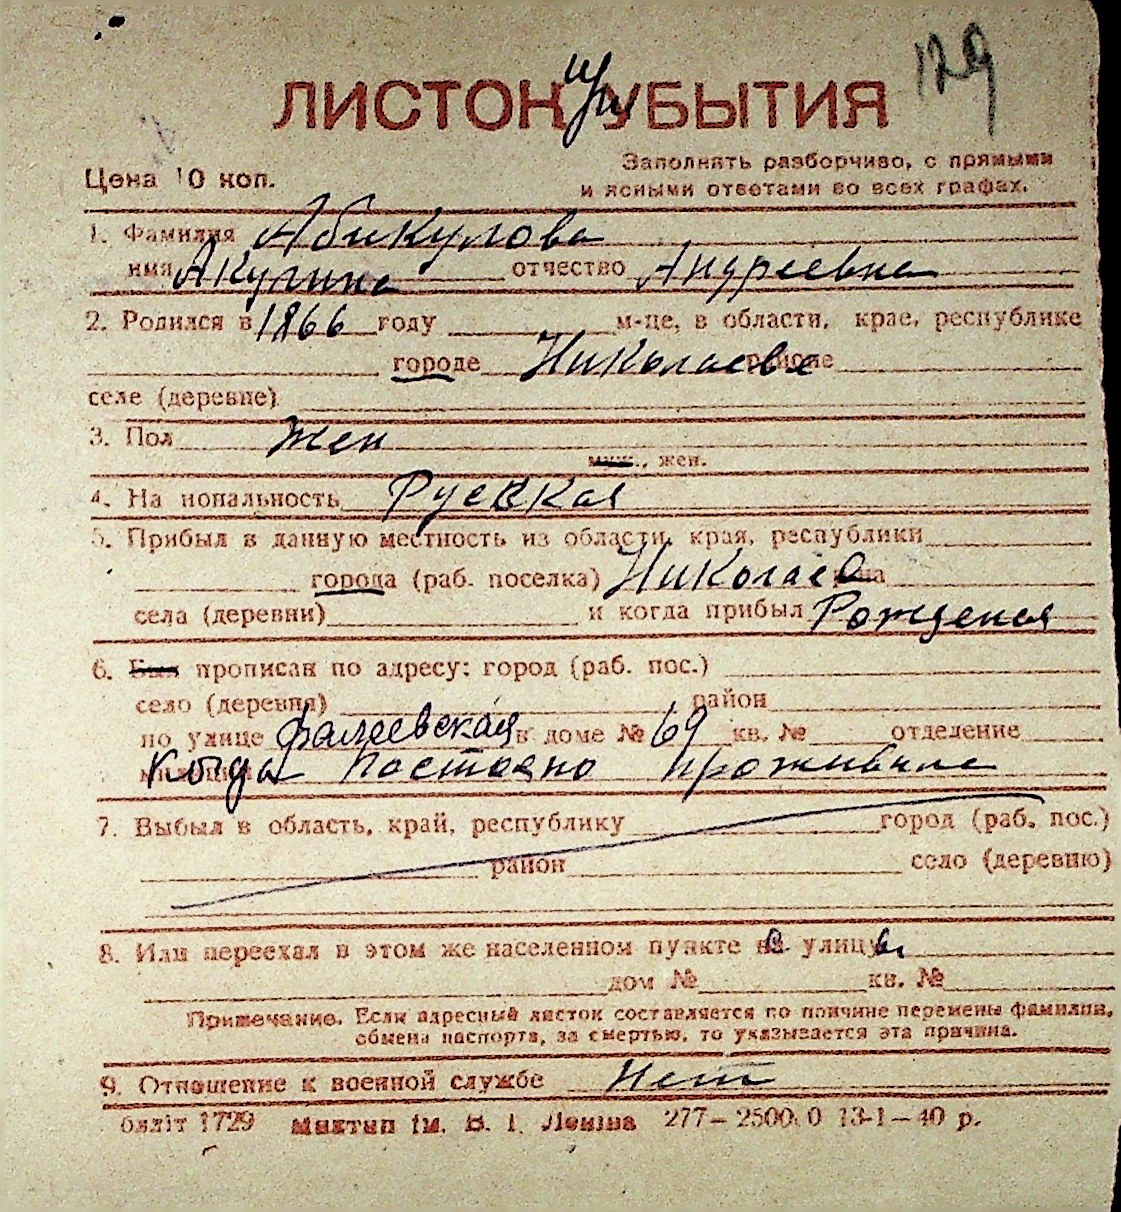 129
ЛИСТОК УБЫТИЯ
Цена 10 коп.
Заполнять разборчиво, с прямыми
и ясными ответами во всех графах.
1. Фамилия Абикулова
имя Акулина отчество Андреевна
2. Родился в 1866 году м-це, в области, крае, республике
городе Николаеве районе
селе (деревне)
3. Пол жен
муж., жен.
4. На нопальность Руская
5. Прибыл в данную местность из области, края, республики
города (раб. поселка) Николаев
села (деревни) и когда прибыл Рожденая
6. Был прописан по адресу: город (раб. пос.)
село (деревня) район
по улице Фалеевская в доме № 69 кв. № отделение
милиции Когда постояно проживала
7. Выбыл в область, край, республику город (раб. пос.)
район село (деревню)
8. Или переехал в этом же населенном пункте на улицу
дом № кв. №
Примечание. Если адресный листок составляется по причине перемены фамилии,
обмена паспорта, за смертью, то указывается эта причина.
9. Отношение к военной службе Нет
бліт 1729 Миктип ім. В. І. Леніна 277–2500.0 13-1–40 р.